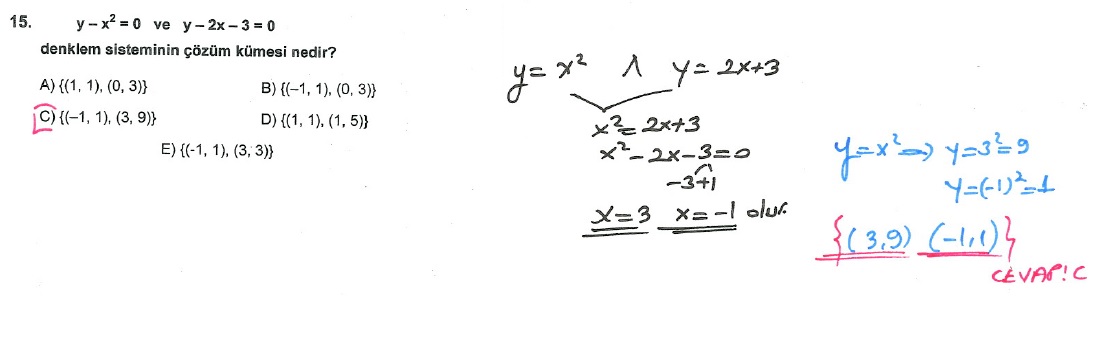 15. y – x² = 0 ve y – 2x – 3 = 0
denklem sisteminin çözüm kümesi nedir?
A) {(1, 1), (0, 3)} B) {(–1, 1), (0, 3)}
C) {(–1, 1), (3, 9)} D) {(1, 1), (1, 5)}
E) {(-1, 1), (3, 3)}
y = x² ∧ y = 2x+3
x² = 2x+3
x² – 2x – 3 = 0
–3 +1
x = 3 x = –1 olur.
y = x² => y = 3² = 9
y = (–1)² = 1
{(3,9) (–1,1)}
CEVAP: C